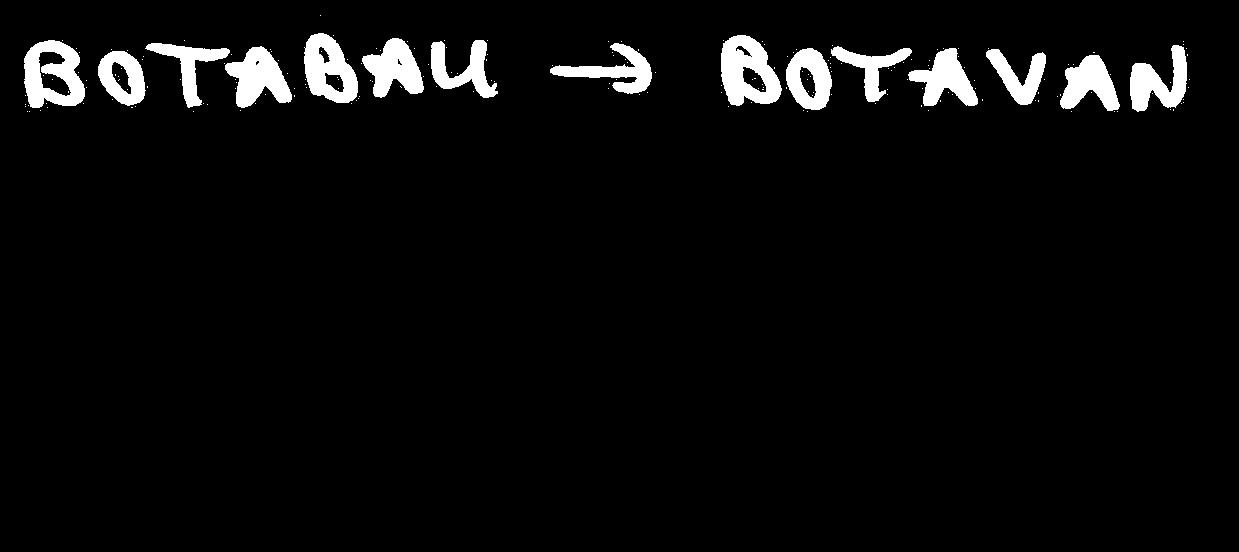 BOTABAU → BOTAVAN